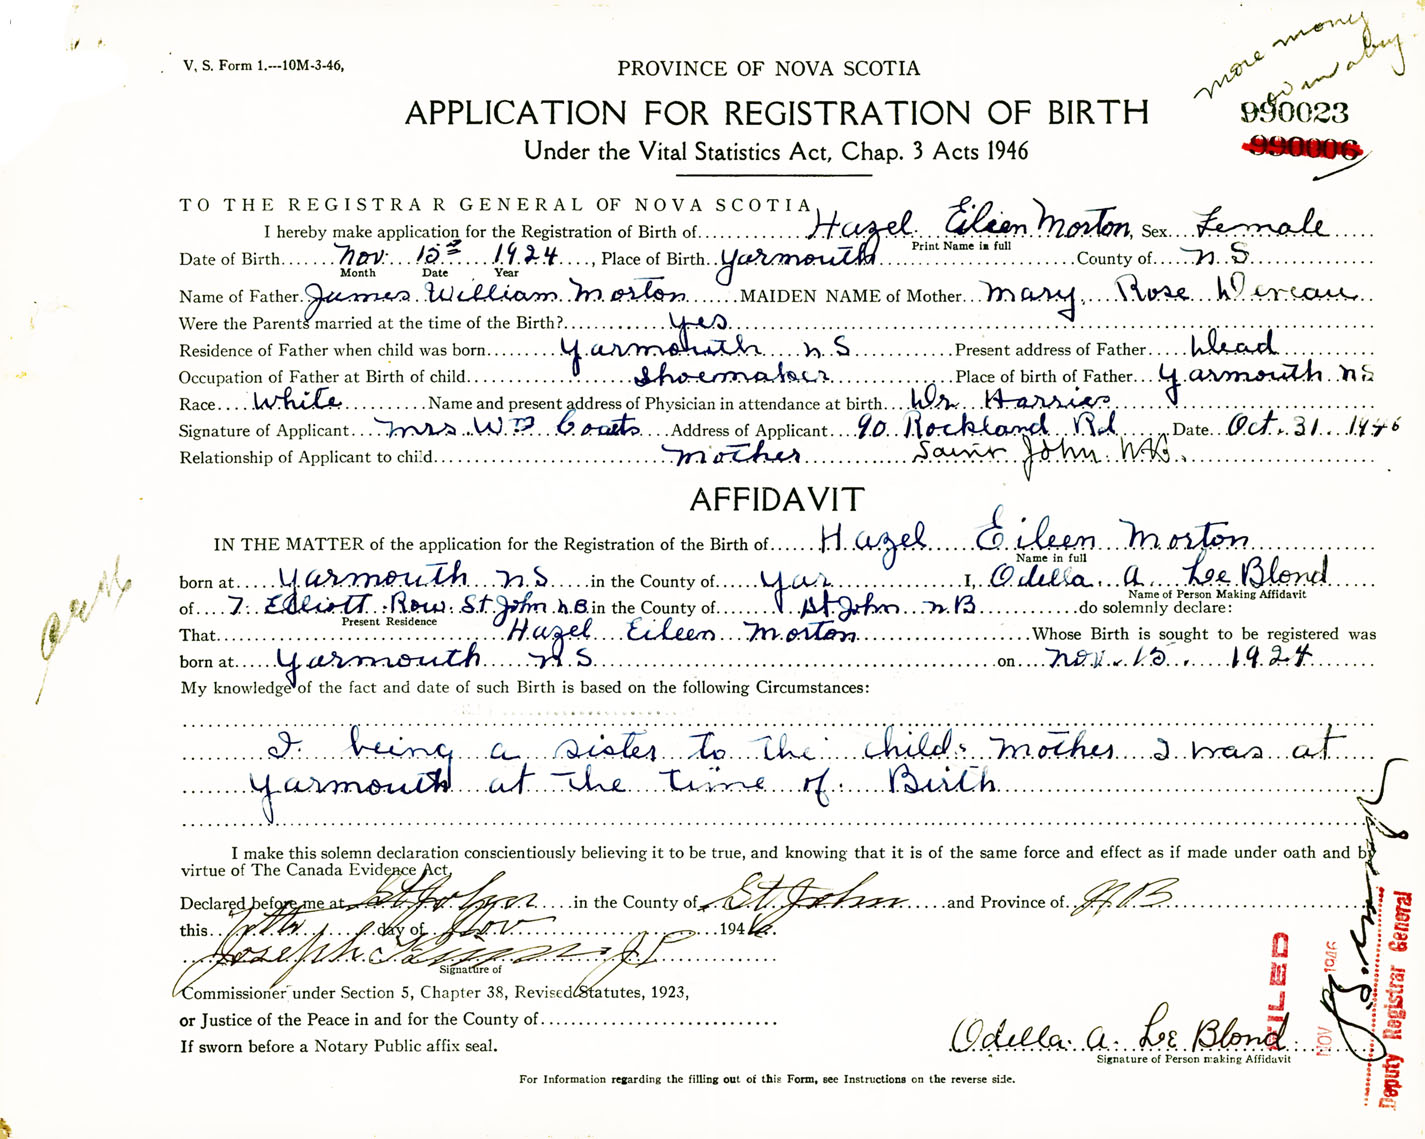 V. S. Form 1.---10M-3-46,
PROVINCE OF NOVA SCOTIA
more money
APPLICATION FOR REGISTRATION OF BIRTH
990023
Under the Vital Statistics Act, Chap. 3 Acts 1946
990006
TO THE REGISTRAR GENERAL OF NOVA SCOTIA
I hereby make application for the Registration of Birth of Hazel Eileen Morton, Sex Female
Print Name in full
Date of Birth Nov. 15 1924, Place of Birth Yarmouth County of N S
Month Date Year
Name of Father James William Morton MAIDEN NAME of Mother Mary Rose
Were the Parents married at the time of the Birth? Yes
Residence of Father when child was born Yarmouth N.S Present address of Father Dead
Occupation of Father at Birth of child Shoemaker Place of birth of Father Yarmouth NS
Race White Name and present address of Physician in attendance at birth Dr Harries
Signature of Applicant Mrs. Wm Coats Address of Applicant 90 Rockland Rd Date Oct. 31. 1946
Relationship of Applicant to child Mother Saint John. N.B.
AFFIDAVIT
IN THE MATTER of the application for the Registration of the Birth of Hazel Eileen Morton
Name in full
born at Yarmouth N S in the County of Yar I, Odella A. Le Blond
Name of Person Making Affidavit
of 7. Elliott Row. St John N.B in the County of St John N B do solemnly declare:
Present Residence
That Hazel Eileen Morton Whose Birth is sought to be registered was
born at Yarmouth N S on Nov. 15. 1924
My knowledge of the fact and date of such Birth is based on the following Circumstances:
I. being a sister to the child's mother I was at
Yarmouth at the time of Birth
I make this solemn declaration conscientiously believing it to be true, and knowing that it is of the same force and effect as if made under oath and by
virtue of The Canada Evidence Act
Declared before me at St John in the County of St John and Province of N B
this day of Nov 1946
Joseph J P
Signature of
Commissioner under Section 5, Chapter 38, Revised Statutes, 1923,
or Justice of the Peace in and for the County of
If sworn before a Notary Public affix seal.
Odella. A. Le Blond
Signature of Person making Affidavit
For Information regarding the filling out of this Form, see Instructions on the reverse side.
FILED
NOV 1946
Deputy Registrar General